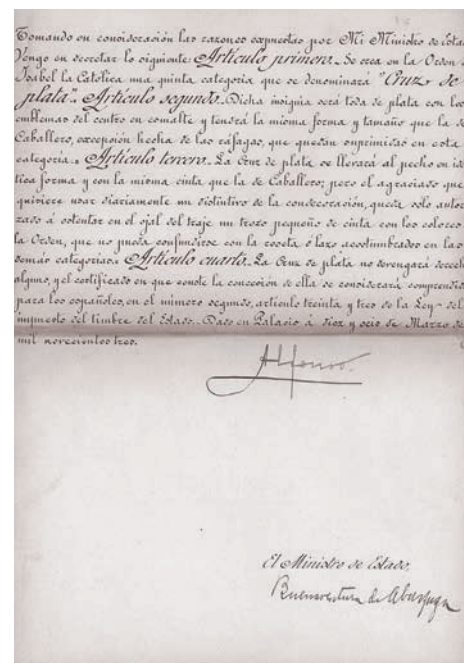 Tomando en consideración las razones expuestas por Mi Ministro de Esta
Vengo en decretar lo siguiente: Artículo primero. Se crea en la Orden d
Isabel la Católica una quinta categoría que se denominará "Cruz de
plata". Artículo segundo. Dicha insignia será toda de plata con los
emblemas del centro en esmalte y tendrá la misma forma y tamaño que la de
Caballero, excepción hecha de las ráfagas, que quedan suprimidas en esta
categoría. Artículo tercero. La Cruz de plata se llevará al pecho en idé
tica forma y con la misma cinta que la de Caballero; pero el agraciado que
quisiere usar diariamente un distintivo de la condecoración, queda sólo autor
zado á ostentar en el ojal del traje un trozo pequeño de cinta con los colores
la Orden, que no pueda confundirse con la roseta ó lazo acostumbrado en las
demás categorías. Artículo cuarto. La Cruz de plata no devengará derech
alguno, y el certificado en que conste la concesión de ella se considerará comprendid
para los españoles, en el número segundo, artículo treinta y tres de la Ley del
impuesto del timbre del Estado. Dado en Palacio á diez y seis de Marzo de
mil novecientos tres.
Alfonso
El Ministro de Estado,
Buenaventura de Abarzuza